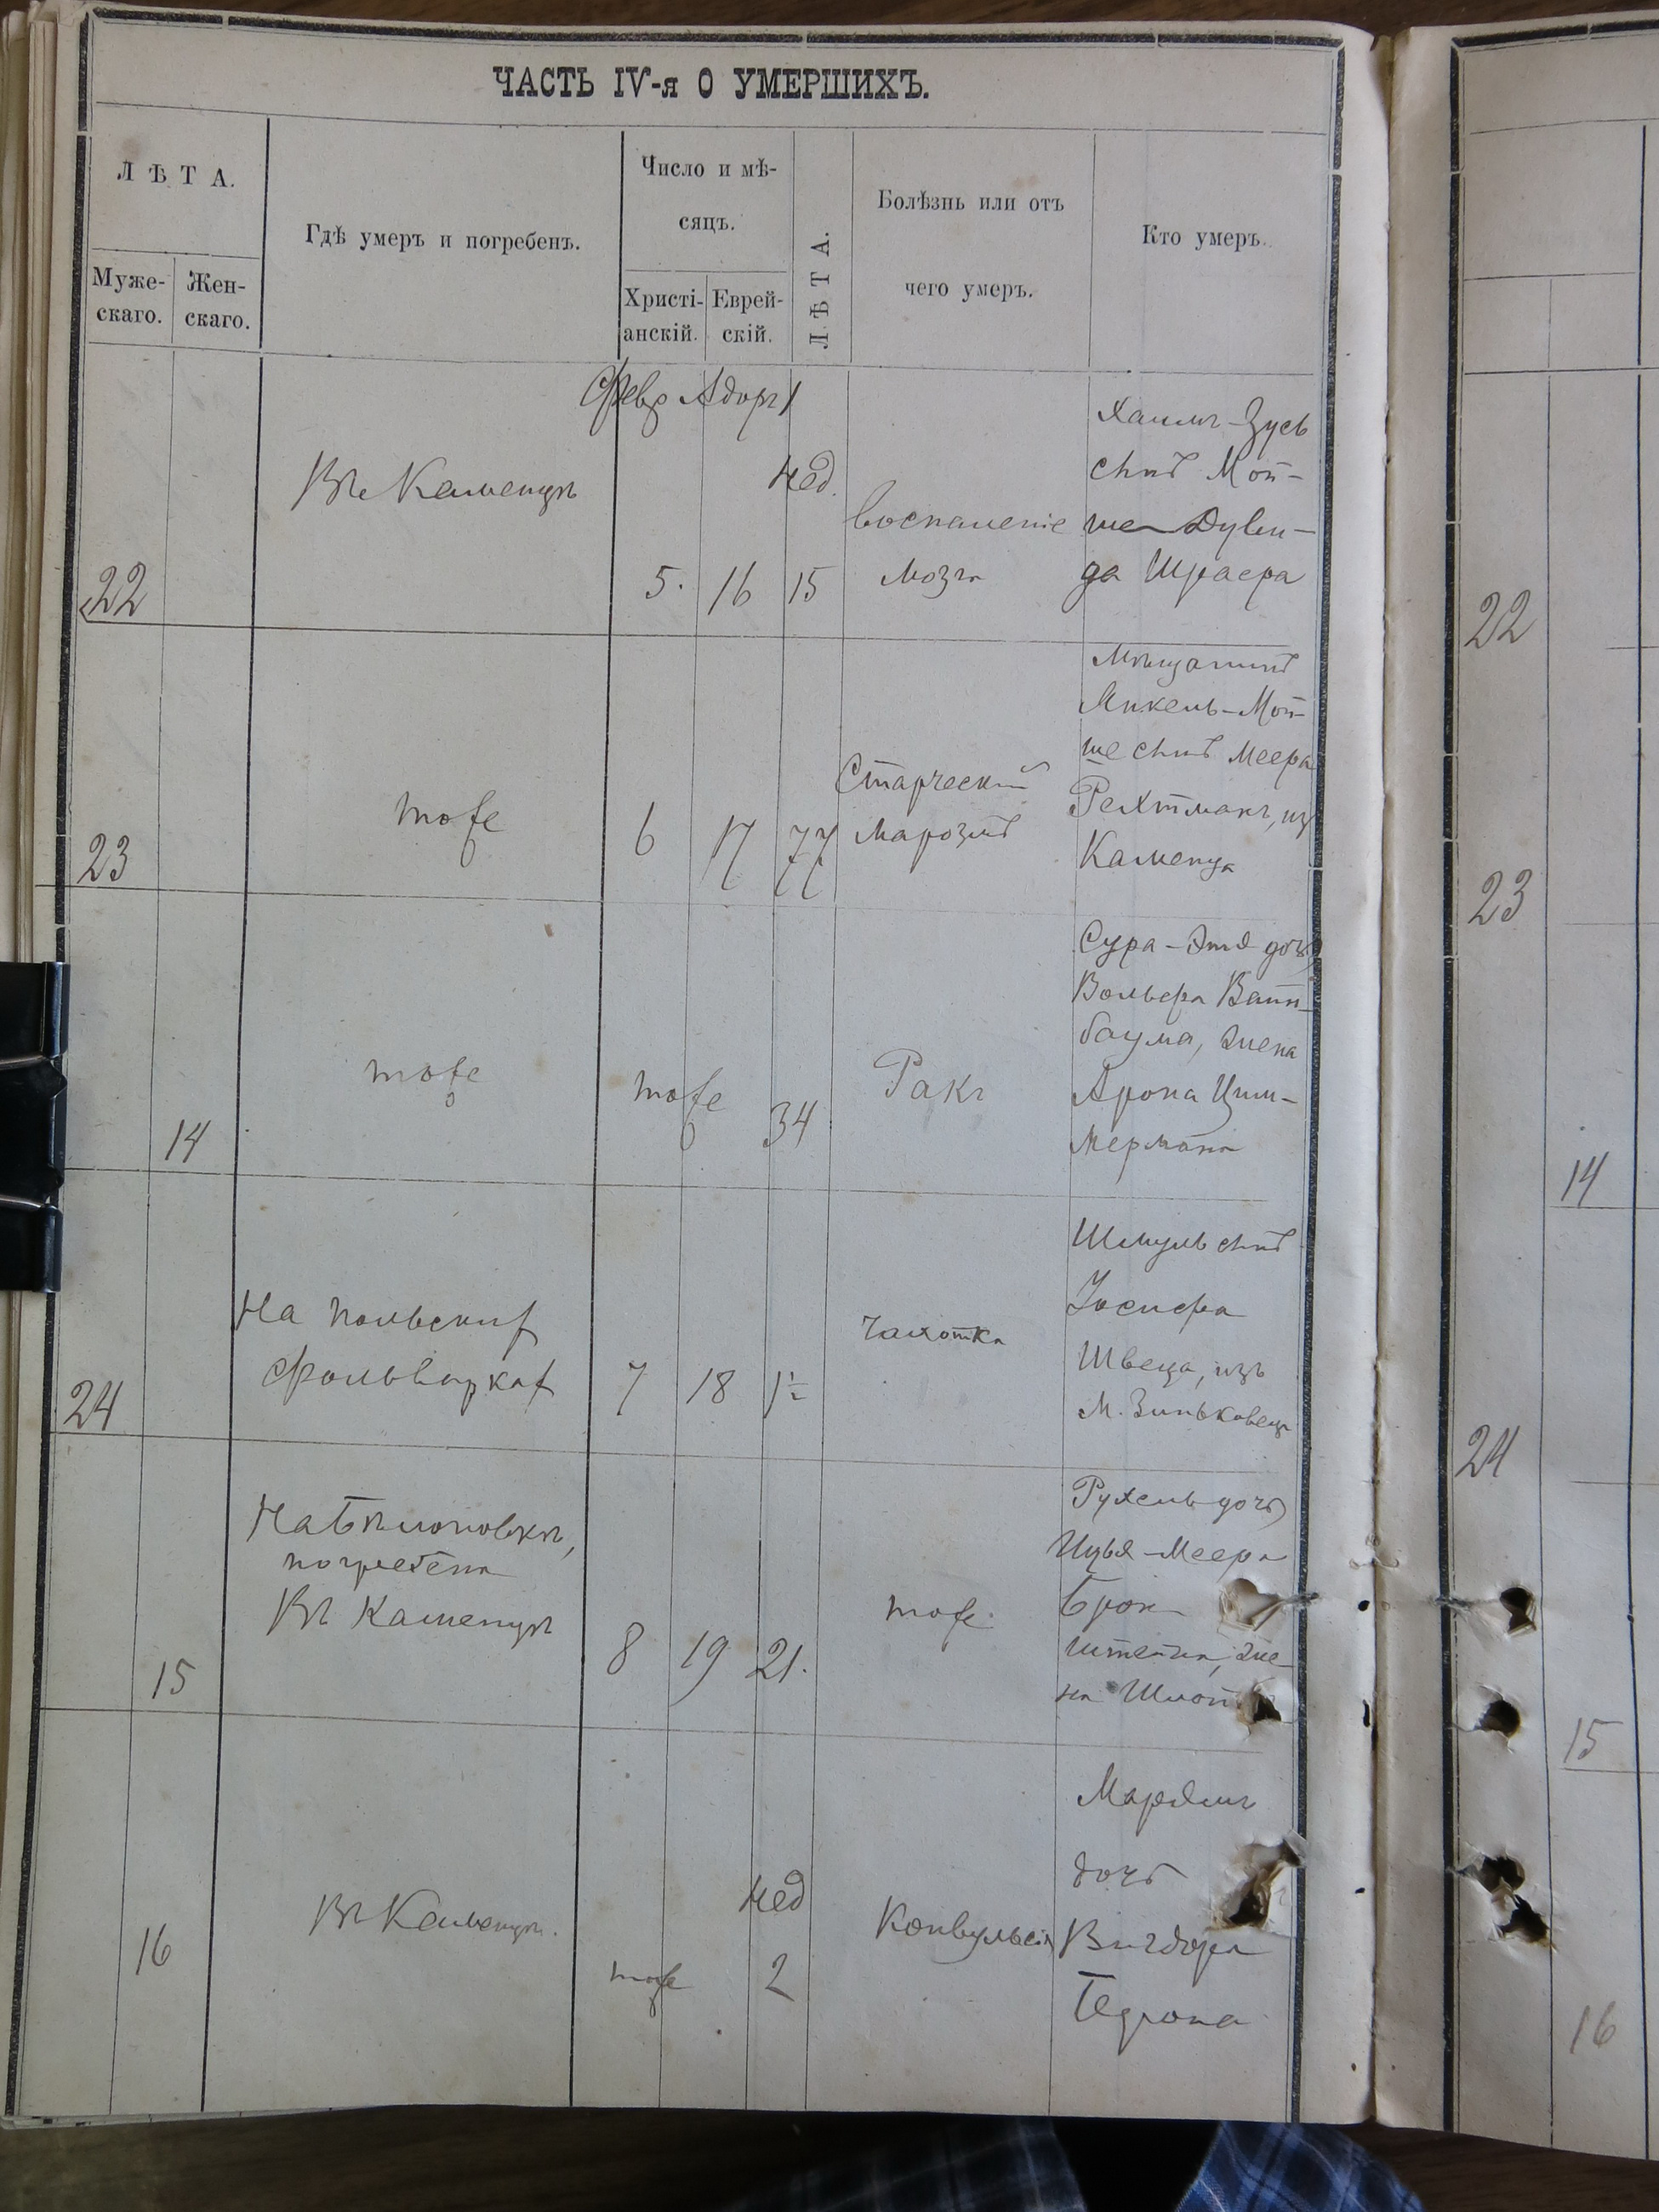 ЧАСТЬ IV-я О УМЕРШИХЪ.
ЛѢТА.
Муже-
скаго.
Жен-
скаго.
Гдѣ умеръ и погребенъ.
Число и мѣ-
сяцъ.
Христі-
анскій.
Еврей-
скій.
ЛѢТА.
Болѣзнь или отъ
чего умеръ.
Кто умеръ.
Февр Адоръ 1
22
Въ Каменцѣ
5. 16
нед.
15
воспаленіе
мозга
Хаимъ-Зусь
сынъ Мой-
ше Дуви-
да Шраера
23
тоже
6 17 77
Старческій
маразмъ
Мѣщанинъ
Янкель-Мой-
ше сынъ Меера
Рехтманъ, из
Каменца
14
тоже
тоже 34
Ракъ
Сура-Этя дочь
Вольфа Вайн-
баума, жена
Арона Цим-
мермана
24
На Польских
фольварках
7 18 1½
Чахотка
Шмуль сынъ
Іосифа
Швеца, изъ
М. Зиньковец
15
На Бѣлановкѣ,
погребена
Въ Каменцѣ
8 19 21.
тоже
Рухель дочь
Ицья-Меера
Брон
штейна, же-
на Шлой
16
Въ Каменцѣ.
тоже
нед
2
Конвульсія
Марьямъ
дочь
Вигдора
Гедрона
22
23
14
24
15
16